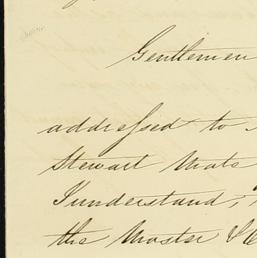 Gentlemen
addressed to
Stewart Mats
I understand,
the Master